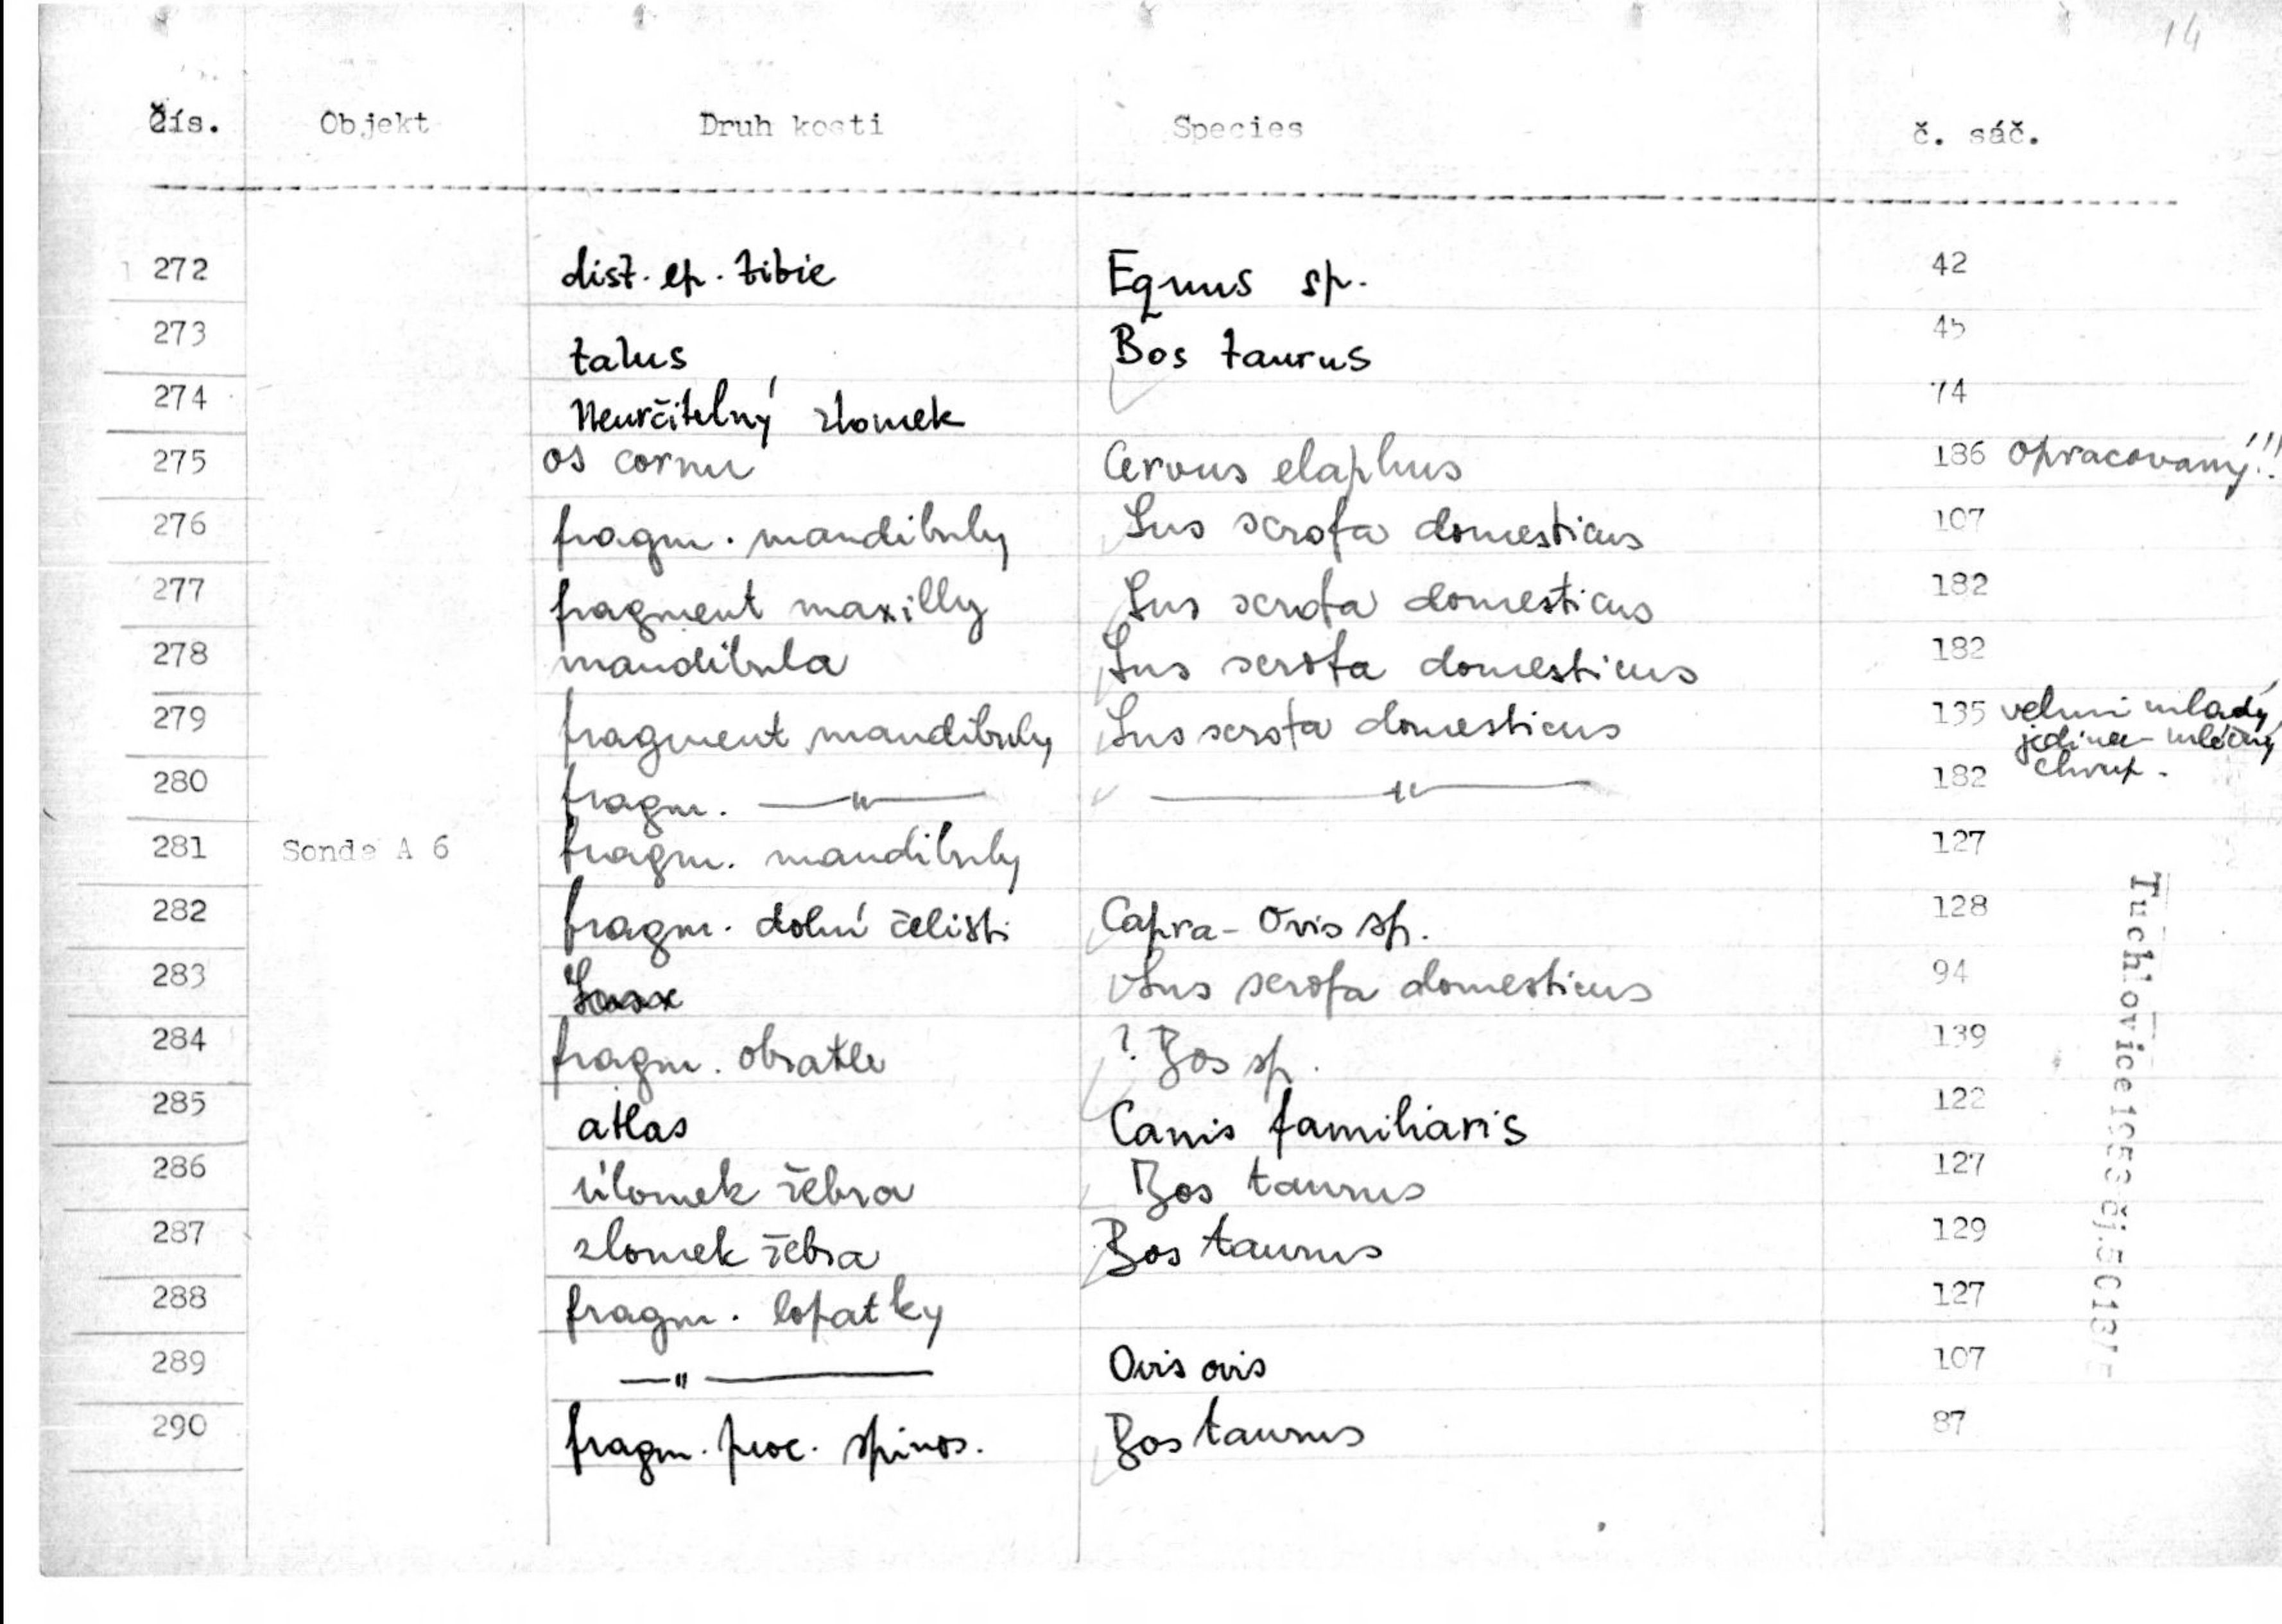 14
čís. Objekt Druh kosti Species č. sáč.
272 dist. ep. tibie Equus sp. 42
273 talus Bos taurus 45
274 Neurčitelný zlomek 74
275 os cornu Cervus elaphus 186 opracovaný!!!
276 fragm. mandibuly Sus scrofa domesticus 107
277 fragment maxilly Sus scrofa domesticus 182
278 mandibula Sus scrofa domesticus 182
279 fragment mandibuly Sus scrofa domesticus 135 velmi mladý
jedinec - mléčný
chrup.
280 fragm. —"— —"— 182
281 Sonda A 6 fragm. mandibuly 127
282 fragm. dolní čelisti Capra - Ovis sp. 128
283 Sus scrofa domesticus 94
284 fragm. obratle ? Bos sp. 139
285 atlas Canis familiaris 122
286 úlomek žebra Bos taurus 127
287 zlomek žebra Bos taurus 129
288 fragm. lopatky 127
289 —"— Ovis ovis 107
290 fragm. proc. spinos. Bos taurus 87
Tuchlovice